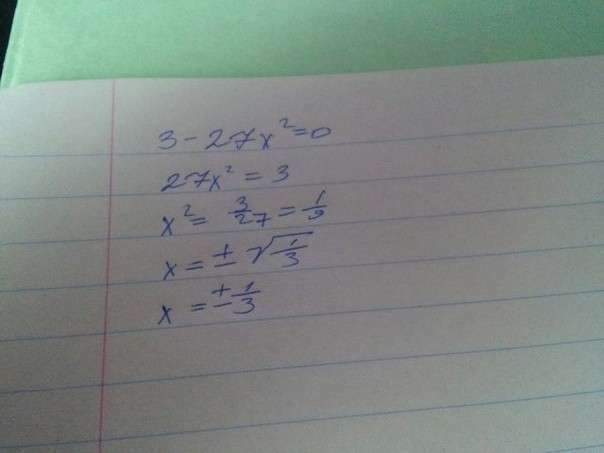 3 - 27x² = 0
27x² = 3
x² = 3/27 = 1/9
x = ± √(1/3)
x = ± 1/3